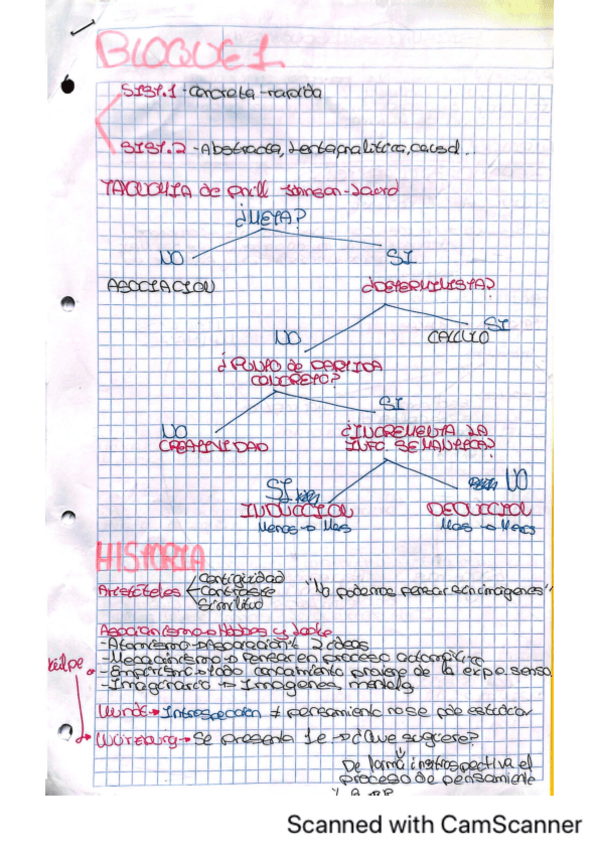 BLOQUE 1
SIST.1 - Concreta - rapida
SIST.2 - Abstracta, lenta, analitica, causal..
TAXONOMIA de Phill Johnson-Laird
¿META?
NO SI
ASOCIACION ¿DETERMINISTA?
NO SI
CALCULO
¿PUNTO de PARTIDA
CONCRETO?
NO SI
CREATIVIDAD ¿INCREMENTA LA
INFO. SEMANTICA?
SI NO
INDUCCION DEDUCCION
Menos → Mas Mas → Menos
HISTORIA
Contigüidad
Aristóteles Contraste "No podemos pensar sin imágenes"
Similitud
Asocianismo → Hobbes y Locke
- Atomismo → Separación 2 ideas
- Mecanicismo → Pensar en proceso automático
- Empirismo → todo conocimiento proviene de la expe. senso
- Imaginario → Imagenes mentales
Külpe
Wundt → Introspección ≠ pensamiento no se pde estudiar
Würzburg → Se presenta 1 e → ¿Que sugiere?
De forma instrospectiva el
proceso de pensamiento
Scanned with CamScanner